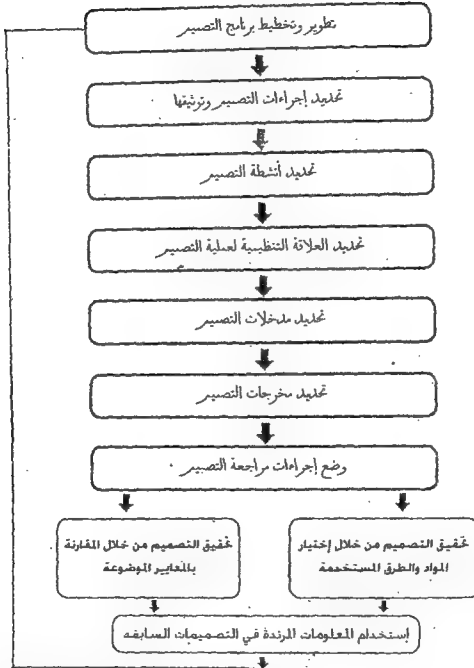 تطوير وتخطيط برنامج التصميم
تحديد إجراءات التصميم وتوثيقها
تحديد أنشطة التصميم
تحديد العلاقة التنظيمية لعملية التصميم
تحديد مدخلات التصميم
تحديد مخرجات التصميم
وضع إجراءات مراجعة التصميم .
تحقيق التصميم من خلال إختيار
المواد والطرق المستخدمة
تحقيق التصميم من خلال المقارنة
بالمعايير الموضوعة
إستخدام المعلومات المرتدة في التصميمات السابقه